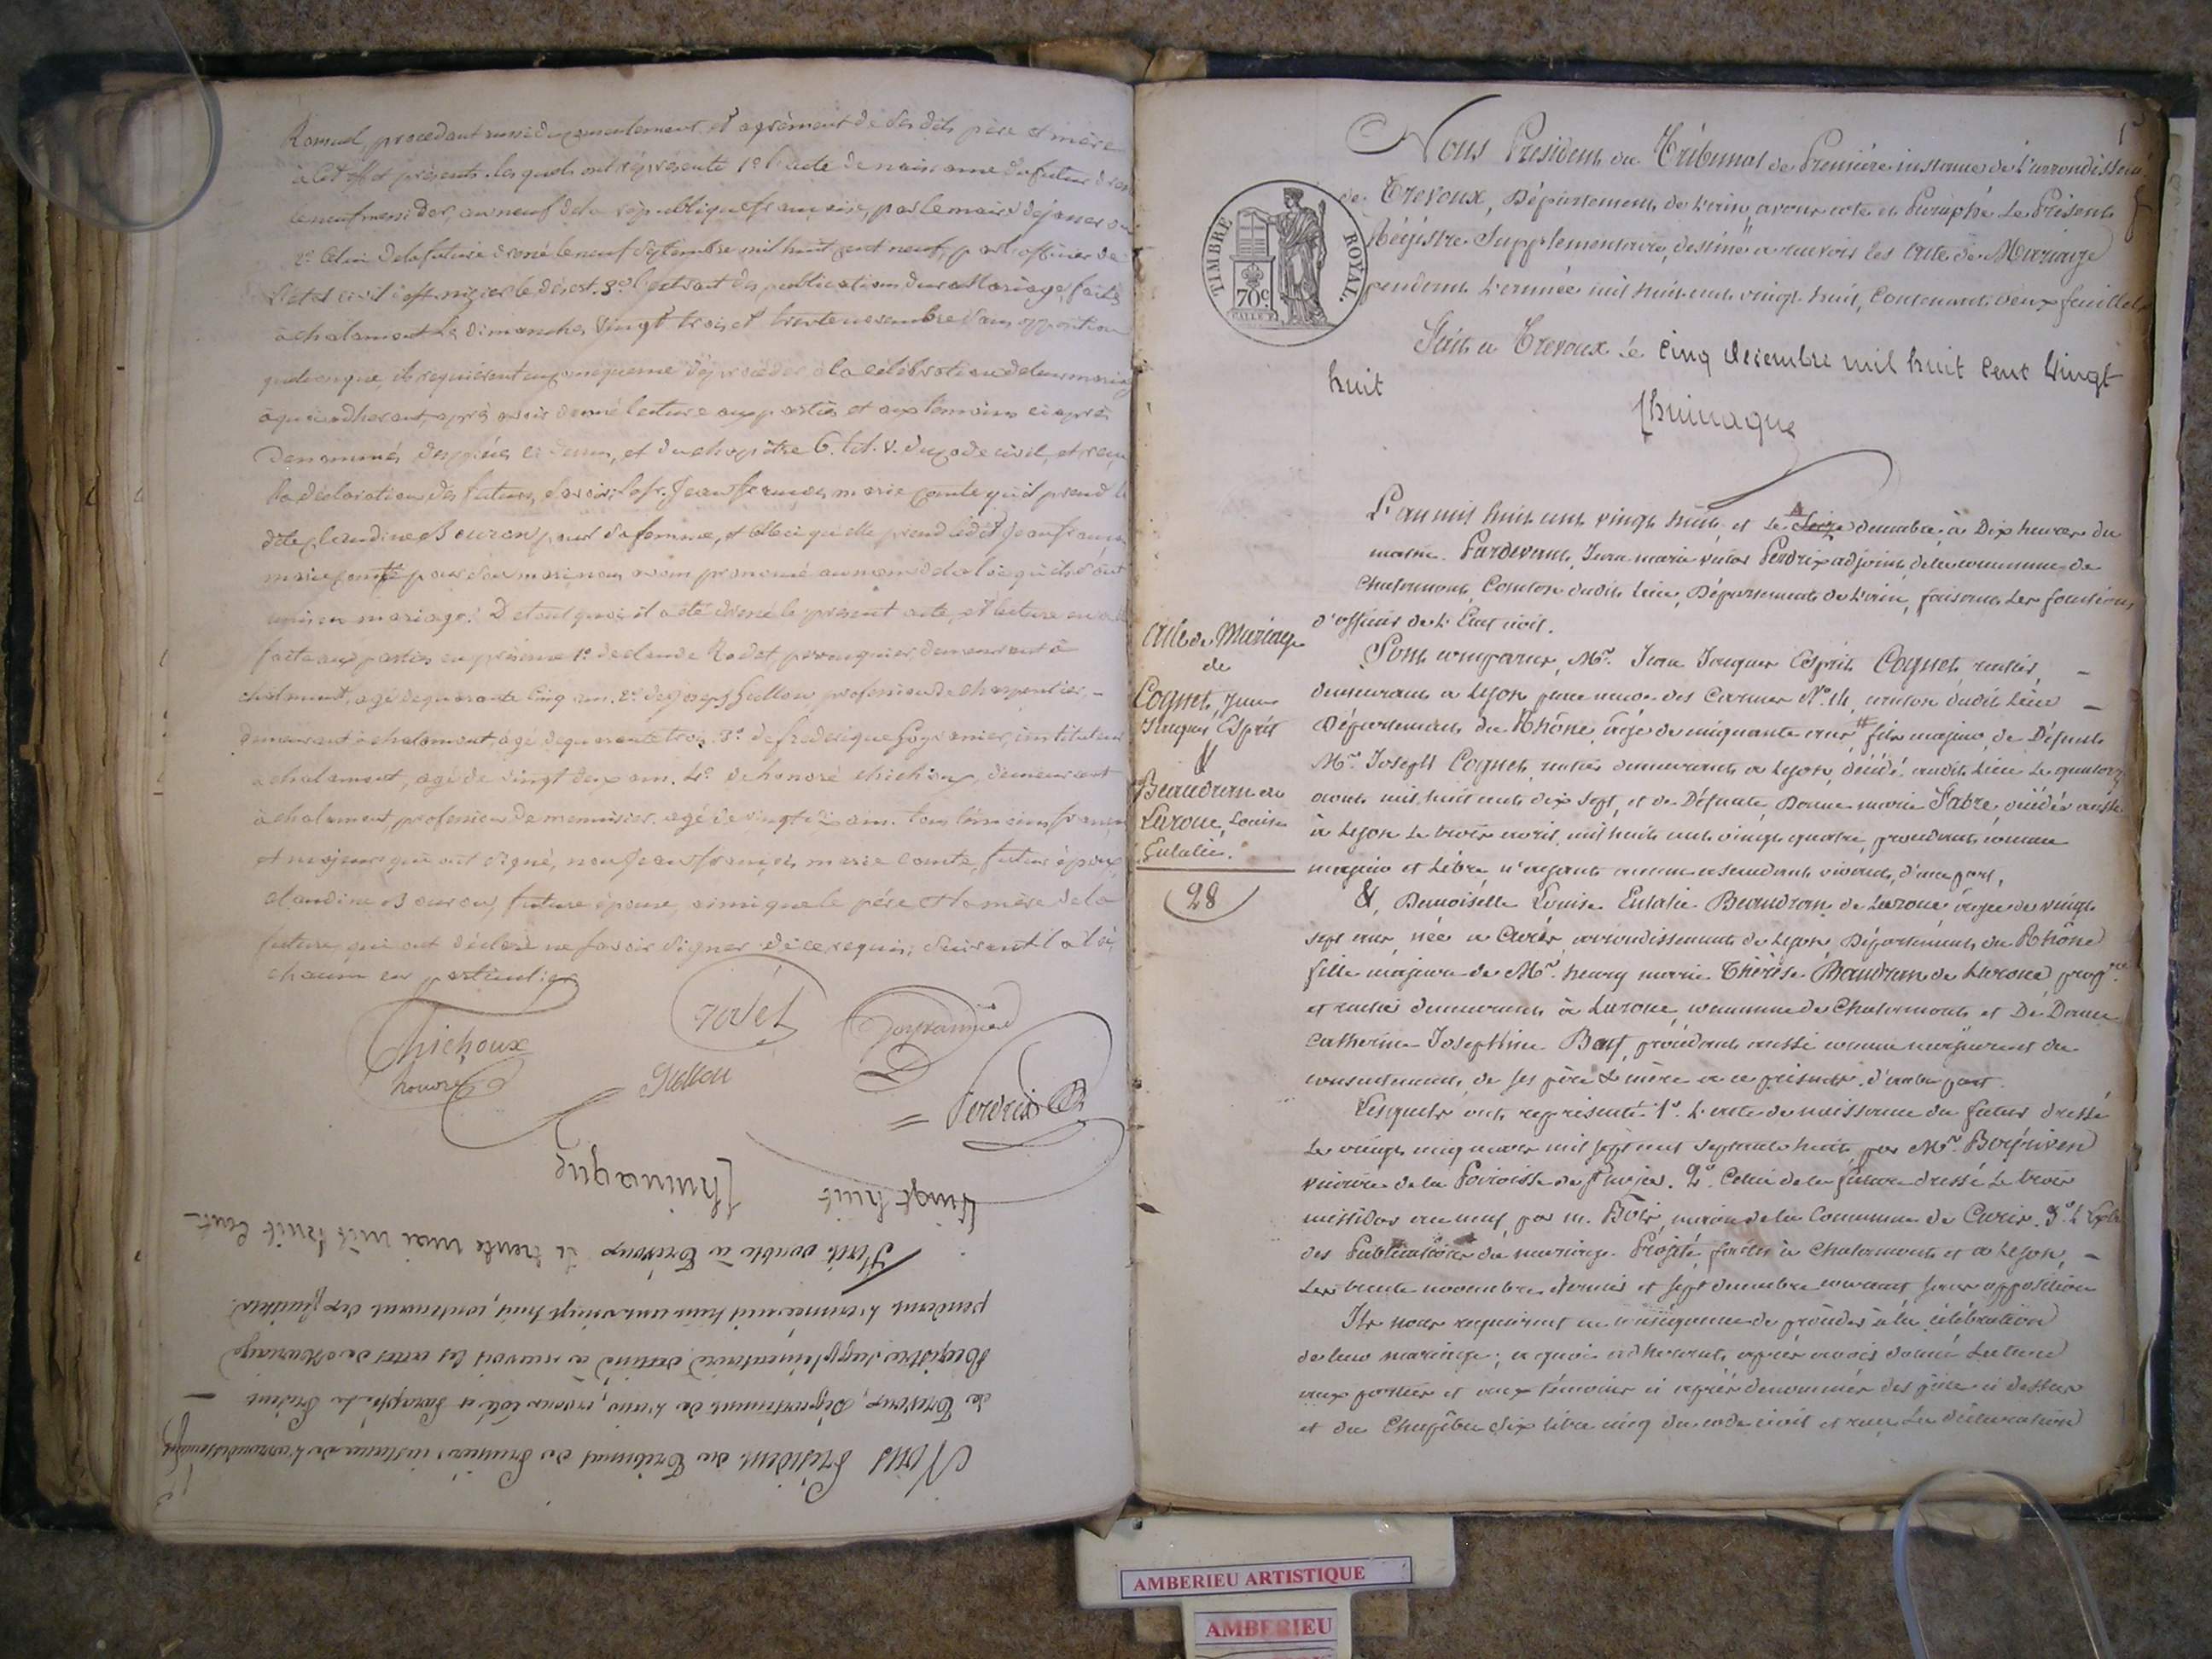 Romuel, procédant aussi du consentement et agrément de ses dits père et mère
à cet effet présents. lesquels ont représenté 1º l'acte de naissance du futur dressé
le neuf messidor, an neuf de la république française, par le maire de
2º Celui de la future dressé le neuf septembre mil huit cent neuf, par l'officier de
l'état civil de st nizier le désert. 3º l'extrait des publications du mariage, faites
à chalamont les dimanches vingt trois et trente novembre sans opposition
quelconque, ils requièrent en conséquence d'y procéder à la célébration de leur mariage
à quoi adhérant, après avoir donné lecture aux parties et aux témoins ci après
Denommés des pièces ci dessus, et du chapitre 6. tit. V. du code civil, et reçu
la déclaration des futurs, savoir: le sr. Jean françois marie comte qu'il prend la
dite claudine Bouron pour sa femme, et celle ci qu'elle prend le dit Jean françois
marie comte pour son mari nous avons prononcé au nom de la loi qu'ils sont
unis en mariage. De tout quoi il a été dressé le présent acte, et lecture en a été
faite aux parties en présence 1º de claude Rodet perruquier, demeurant à
chalamont, agé de quarante cinq ans. 2º de joseph Guillou profession de charpentier, -
demeurant à chalamont, agé de quarante trois. 3º de frederique Goyrannier, instituteur
à chalamont, agé de vingt deux ans. 4º de honoré chichoux, demeurant
à chalamont, profession de menuisier. agé de vingt six ans. tous témoins français
et majeurs qui ont signé, non Jean françois marie comte, futur époux,
claudine Bouron, future épouse, ainsi que le père et la mère de la
future, qui ont déclaré ne savoir signer de ce requis; suivant la loi,
chacun en particulier
Chichoux
honoré
rodet
Goyrannier
Guillou
Perdrix
Nous Président du Tribunal de Première instance de l'arrondissement
de Trevoux, Département de l'ain, avons Coté et Paraphé le Présent
Régistre supplémentaire, destiné à recevoir les actes de Mariage
pendant l'année mil huit cent vingt huit, contenant deux feuillets.
Fait double à Trévoux le trente mai mil huit Cent
Vingt huit
Thuinague
Nous Président du Tribunal de Première instance de l'arrondissemt
de Trevoux, Département de l'ain, avons coté et Paraphé Le Présent
Régistre Supplementaire, destiné a recevoir les Acte de Mariage
pendant l'année mil huit cent vingt huit, Contenant deux feuillets
TIMBRE ROYAL.
70c
Fait a Trevoux le cinq décembre mil huit Cent Vingt
huit
Thuinague
L'an mil huit cent vingt huit et le seize décembre à Dix heures du
matin. Pardevant, Jean marie victor Perdrix adjoint de la commune de
Chalamont, Canton dudit lieu, Département de L'ain, faisant les fonctions
d'officier de L'Etat civil.
Sont comparus, Mr. Jean Jacques Esprit Cognet, rentier, -
demeurant a Lyon place neuve des Carmes Nº. 14, canton dudit lieu -
Département du Rhône, âgé de cinquante ans # fils majeur de Défunt
Mr. Joseph Cognet, rentier demeurant a Lyon, décédé audit lieu Le quatorze
août mil huit cent dix sept, et de Défunte Dame marie Fabre, décédée aussi
à Lyon Le trois avril mil huit cent vingt quatre, procédant comme
majeur et Libre n'ayant aucun ascendant vivant, d'une part,
&, Demoiselle Louise Eulalie Beaudran de Laroue âgée de vingt
sept ans, née a Curis, arrondissement de Lyon Département du Rhône
fille majeure de Mr. henry marie Thérèse Baudran de Laroue prop.re
et rentier demeurant à Laroue, commune de Chalamont et De Dame
Catherine Josephine Bay, procédant aussi comme majeure et du
consentement de ses père & mère a ce présents. d'autre part.
Lesquels ont représenté 1º. L'acte de naissance du futur dressé
Le vingt cinq mars mil sept cent septante huit par Mr.
vicaire de la Paroisse de st Nizier. 2º. Celui de la future dressé Le trois
messidor an neuf par m. Bois, maire de la Commune de Curis. 3º. L'
des Publications du mariage Projeté, faites à Chalamont et a Lyon, -
Les trente novembre dernier et sept decembre courant sans opposition
Ils nous requièrent en conséquence de procéder à la célébration
de leur mariage; a quoi adhérant, après avoir donné Lecture
aux parties et aux témoins ci après denommés des pièces ci dessus
et du Chapître six titre cinq du code civil et reçu La déclaration
Acte de Mariage
de
Cognet, Jean
Jacques Esprit
&
Beaudran de
Laroue, Louise
Eulalie.
28
AMBERIEU ARTISTIQUE
AMBERIEU